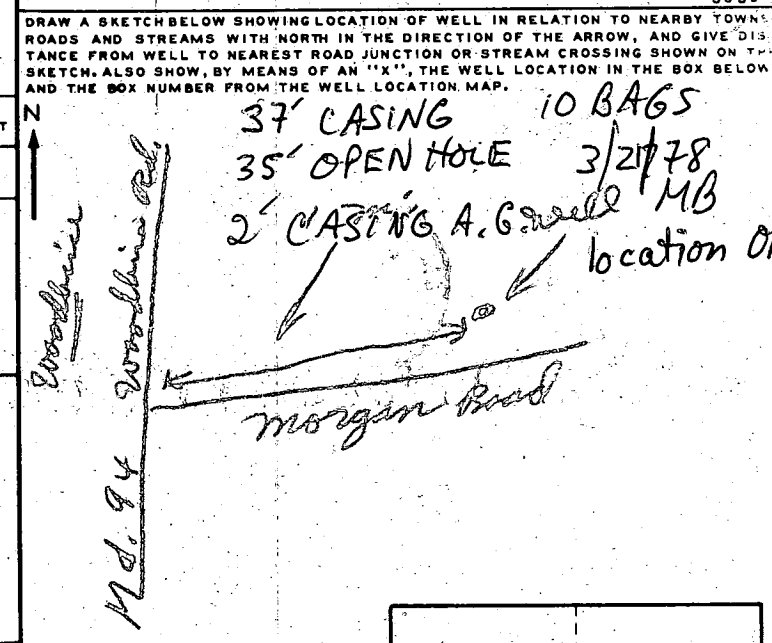 DRAW A SKETCH BELOW SHOWING LOCATION OF WELL IN RELATION TO NEARBY TOWNS
ROADS AND STREAMS WITH NORTH IN THE DIRECTION OF THE ARROW, AND GIVE DIS
TANCE FROM WELL TO NEAREST ROAD JUNCTION OR STREAM CROSSING SHOWN ON TH
SKETCH. ALSO SHOW, BY MEANS OF AN "X", THE WELL LOCATION IN THE BOX BELOW
AND THE BOX NUMBER FROM THE WELL LOCATION MAP.
N
37' CASING 10 BAGS
35' OPEN HOLE 3/21/78
2' CASING A.G. well MB
location O
Woodbine
Md. 94 Woodbine Rd.
Morgan Road